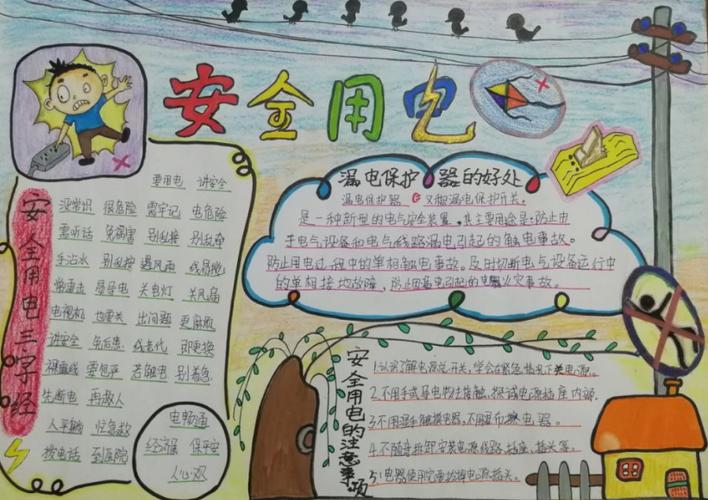 安全用电
安全用电三字经
要用电 讲安全
没常识 很危险 需牢记 电危险
需听话 免祸害 别乱接 别乱牵
手沾水 别乱接 遇风雨 线易搅
常雷击 易导电 关电灯 关风扇
电视机 也要关 出问题 更麻烦
讲安全 免后患 线老化 即更换
裸露线 要包严 若触电 别着急
先断电 再救人
人平躺 快急救
拨电话 到医院
电畅通
经济强 保平安
人心欢
漏电保护器的好处
漏电保护器 又叫漏电保护开关,
是一种新型的电气安全装置,其主要用途是:防止由
于电气设备和电气线路漏电引起的触电事故。
防止用电过程中的单相触电事故。及时切断电气设备运行中
的单相接地故障,防止因漏电引起的电气火灾事故。
安全用电的注意事项
1.认识了解电源总开关,学会在紧急情况下关电源。
2.不用手或导电物去接触、探试电源插座内部。
3.不用湿手触摸电器,不用湿布擦电器。
4.不随意拆卸安装电源线路、插座、插头等。
5.电器使用完要拔掉电源插头。